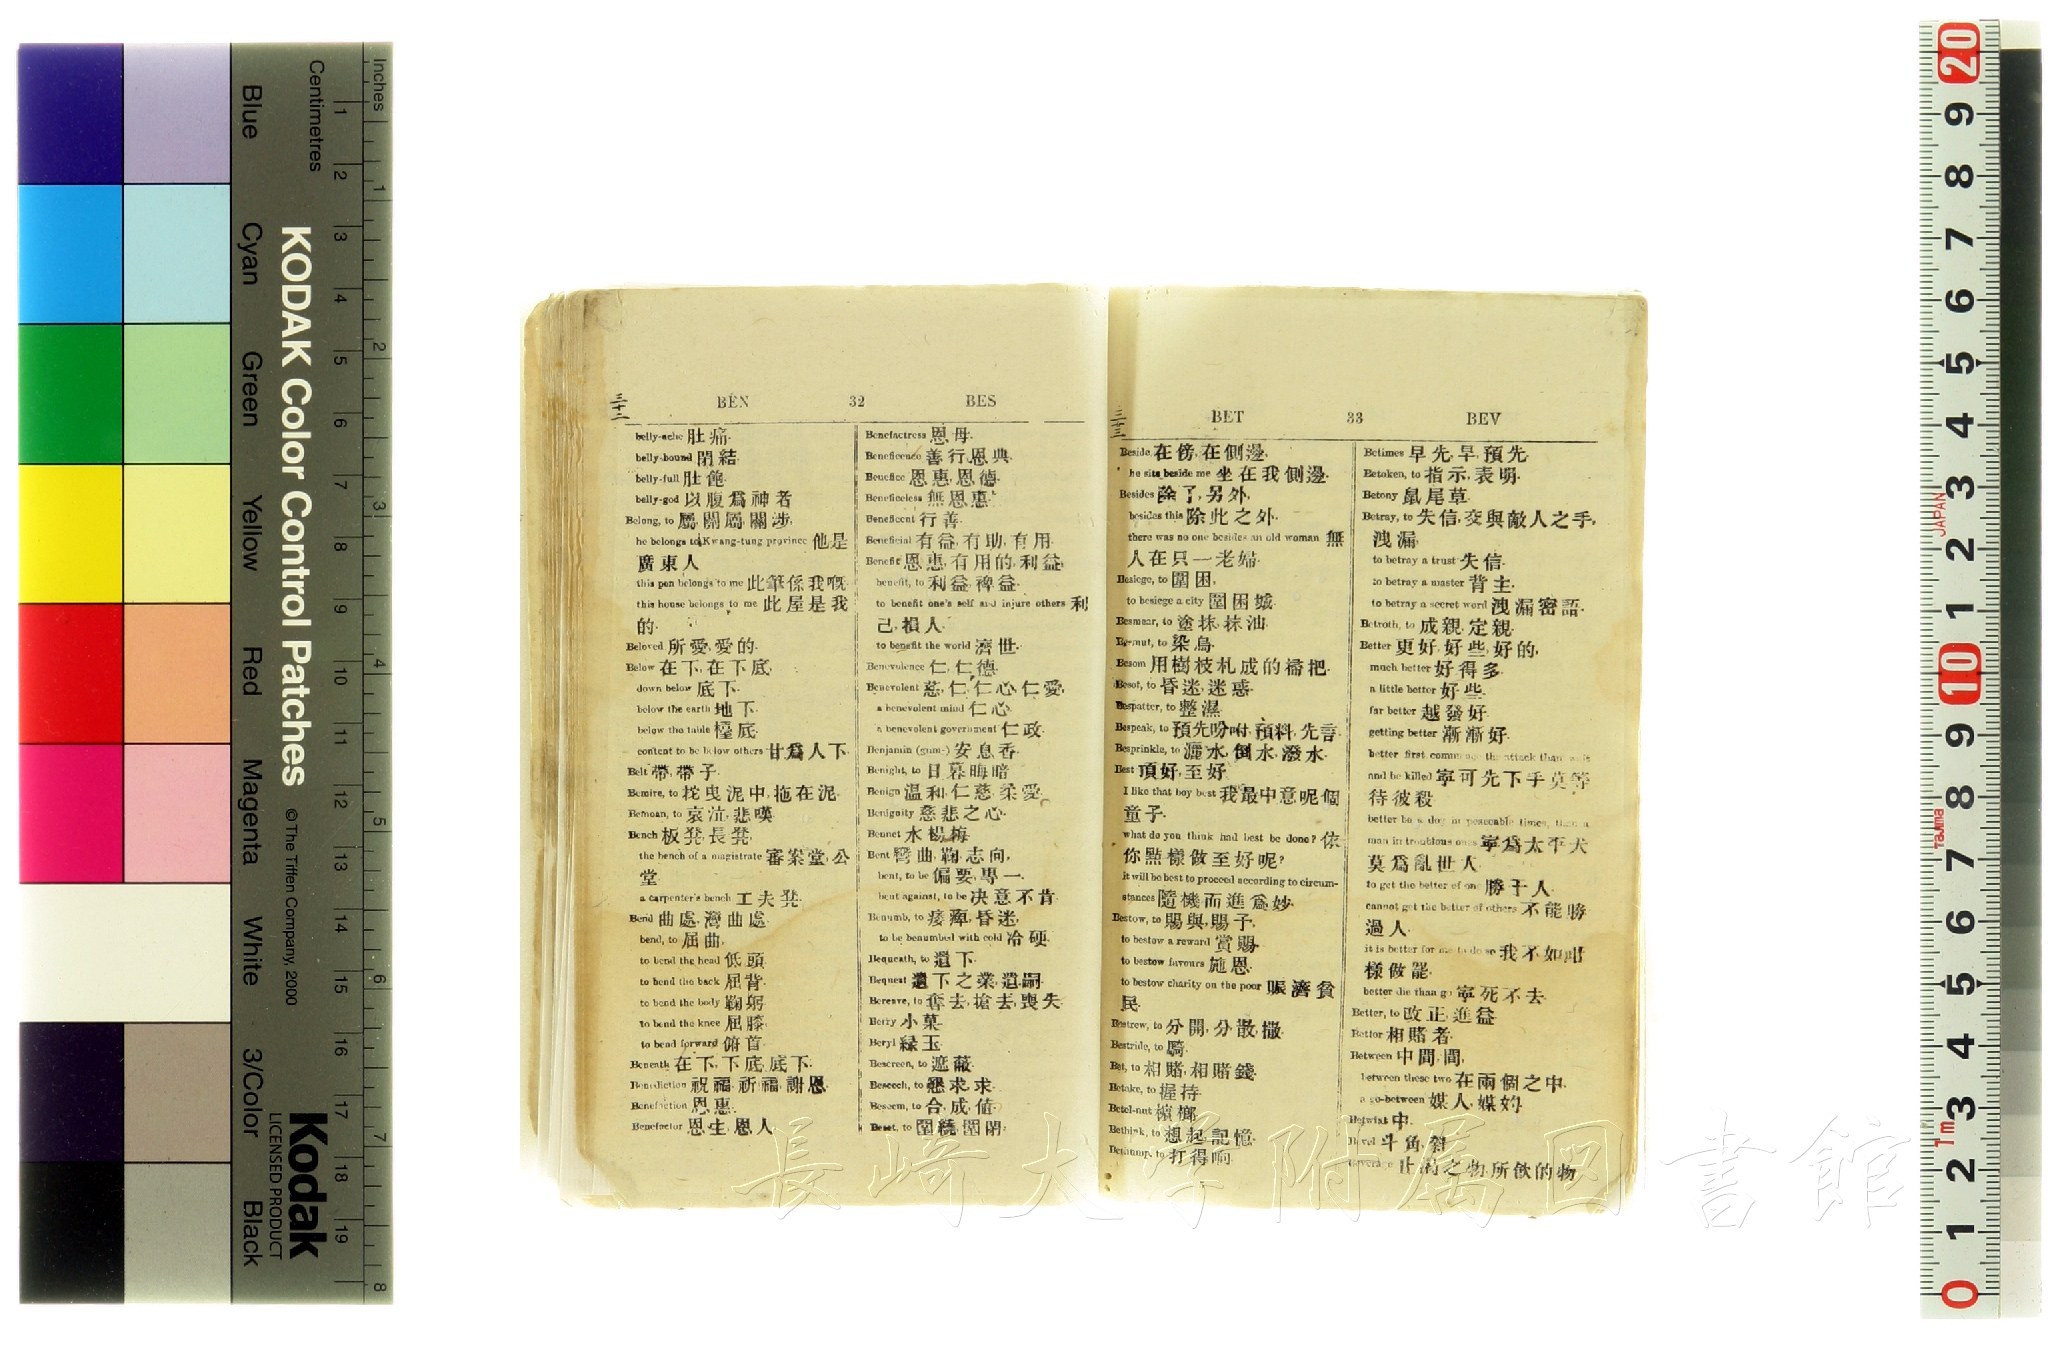 BEN 32 BES
三十二
belly-ache 肚痛.
belly-bound 閉結.
belly-full 肚飽.
belly-god 以腹爲神者
Belong, to 屬,關屬,關涉.
he belongs to Kwang-tung province 他是
廣東人
this pen belongs to me 此筆係我嘅
this house belongs to me 此屋是我
的.
Beloved 所愛,愛的.
Below 在下,在下底.
down below 底下.
below the earth 地下.
below the table 檯底.
content to be below others 甘爲人下.
Belt 帶,帶子.
Bemire, to 拕曳泥中,拖在泥.
Bemoan, to 哀泣,悲嘆.
Bench 板凳,長凳.
the bench of a magistrate 審案堂,公
堂
a carpenter's bench 工夫凳.
Bend 曲處,灣曲處.
bend, to 屈曲.
to bend the head 低頭
to bend the back 屈背.
to bend the body 鞠躬
to bend the knee 屈膝.
to bend forward 俯首.
Beneath 在下,下底,底下.
Benediction 祝福,祈福,謝恩.
Benefaction 恩惠.
Benefactor 恩主,恩人.
Benefactress 恩母.
Beneficence 善行,恩典.
Benefice 恩惠,恩德.
Beneficeless 無恩惠.
Beneficent 行善.
Beneficial 有益,有助,有用.
Benefit 恩惠,有用的,利益.
benefit, to 利益,裨益.
to benefit one's self and injure others 利
己損人.
to benefit the world 濟世.
Benevolence 仁,仁德.
Benevolent 慈仁,仁心,仁愛.
a benevolent mind 仁心.
a benevolent government 仁政.
Benjamin (gum-) 安息香.
Benight, to 日暮,晦暗.
Benign 温和,仁慈,柔愛.
Benignity 慈悲之心.
Bennet 水楊梅.
Bent 彎曲,鞠,志向,
bent, to be 偏要,專一.
bent against, to be 决意不肯.
Benumb, to 痿痺,昏迷.
to be benumbed with cold 冷硬.
Bequeath, to 遺下.
Bequest 遺下之業,遺嗣.
Bereave, to 奪去,搶去,喪失.
Berry 小菓.
Beryl 緑玉.
Bescreen, to 遮蔽.
Beseech, to 懇求,求.
Beseem, to 合,成,值.
Beset, to 圍繞,圍閉.
BET 33 BEV
三十三
Beside, 在傍,在側邊.
he sits beside me 坐在我側邊.
Besides 除了,另外.
besides this 除此之外.
there was no one besides an old woman 無
人在只一老婦.
Besiege, to 圍困.
to besiege a city 圍困城.
Besmear, to 塗抹,抹油.
Besmut, to 染烏.
Besom 用樹枝札成的掃把.
Besot, to 昏迷,迷惑.
Bespatter, to 整濕.
Bespeak, to 預先吩咐,預料,先言.
Besprinkle, to 灑水,倒水,潑水.
Best 頂好,至好.
I like that boy best 我最中意呢個
童子.
what do you think had best be done? 依
你點樣做至好呢?
it will be best to proceed according to circum-
stances 隨機而進爲妙.
Bestow, to 賜與,賜予.
to bestow a reward 賞賜.
to bestow favours 施恩.
to bestow charity on the poor 賑濟貧
民.
Bestrew, to 分開,分散,撒.
Bestride, to 騎.
Bet, to 相賭,相賭錢.
Betake, to 握持.
Betel-nut 檳榔.
Bethink, to 想起,記憶.
Bethump, to 打得响.
Betimes 早先,早,預先.
Betoken, to 指示,表明.
Betony 鼠尾草.
Betray, to 失信,交與敵人之手,
洩漏,
to betray a trust 失信.
to betray a master 背主.
to betray a secret word 洩漏密語.
Betroth, to 成親,定親.
Better 更好,好些,好的,
much better 好得多.
a little better 好些.
far better 越發好.
getting better 漸漸好.
better first commence the attack than wait
and be killed 寧可先下手莫等
待彼殺
better be a dog in peaceable times, than a
man in troublous ones 寧爲太平犬
莫爲亂世人.
to get the better of one 勝于人.
cannot get the better of others 不能勝
過人.
it is better for me to do so 我不如咁
樣做罷.
better die than go 寧死不去.
Better, to 改正,進益.
Bettor 相賭者.
Between 中間,間,
between these two 在兩個之中.
a go-between 媒人,媒妁.
Betwixt 中.
Bevel 斗角
Beverage 止渴之物,所飲的物
長崎大学附属図書館
Blue Cyan Green Yellow Red Magenta White 3/Color Black
KODAK Color Control Patches © The Tiffen Company, 2000
Kodak
LICENSED PRODUCT
Centimetres 1 2 3 4 5 6 7 8 9 10 11 12 13 14 15 16 17 18 19
Inches 1 2 3 4 5 6 7 8
20 9 8 7 6 5 4 3 2 1 10 9 8 7 6 5 4 3 2 1 0
JAPAN
Tajima
1m